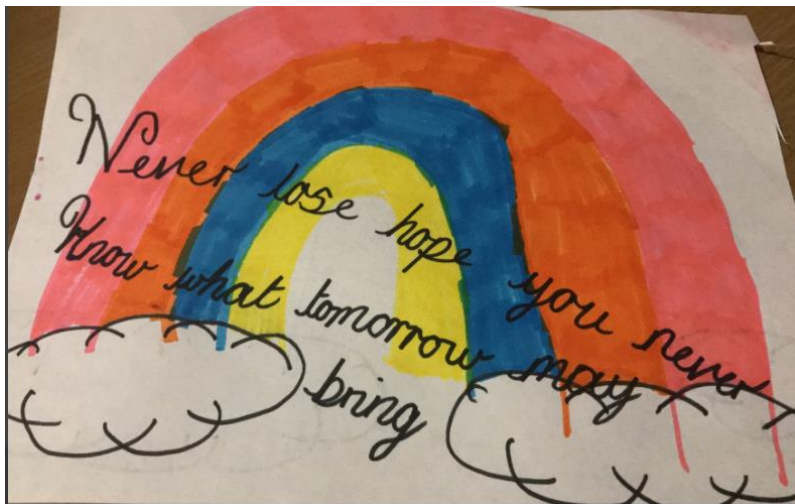 Never lose hope you never
Know what tomorrow may
bring